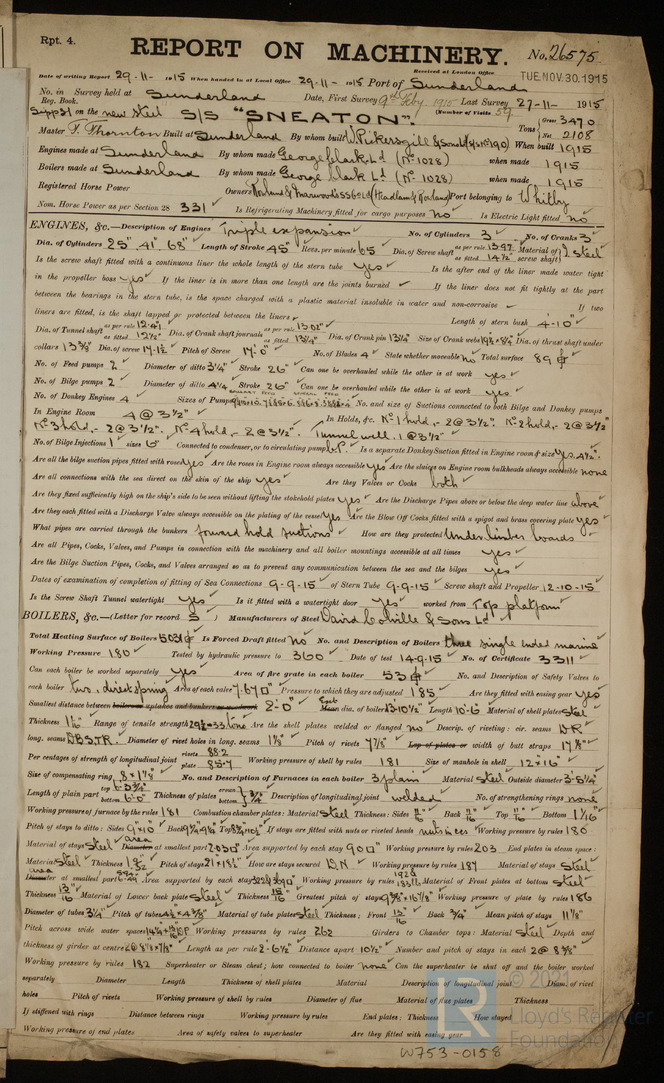 Rpt. 4.
REPORT ON MACHINERY. No. 26575
Received at London Office TUE. NOV. 30. 1915
Date of writing Report 29-11- 1915 When handed in at Local Office 29-11- 1915 Port of Sunderland
No. in Survey held at Sunderland Date, First Survey 9th Feby 1915 Last Survey 27-11- 1915
Reg. Book. (Number of Visits 59
on the new steel S/S "SNEATON." Tons Gross 3470 Net 2108
Master F. Thornton Built at Sunderland By whom built When built 1915
Engines made at Sunderland By whom made George Clark Ld (No 1028) when made 1915
Boilers made at Sunderland By whom made George Clark Ld (No 1028) when made 1915
Registered Horse Power Owners Port belonging to Whitby
Nom. Horse Power as per Section 28 331 Is Refrigerating Machinery fitted for cargo purposes no Is Electric Light fitted no
ENGINES, &c.—Description of Engines Triple expansion No. of Cylinders 3 No. of Cranks 3
Dia. of Cylinders 25" 41" 68" Length of Stroke 45" Revs. per minute 65 Dia. of Screw shaft as per rule 13.97 as fitted 14½" Material of screw shaft Steel
Is the screw shaft fitted with a continuous liner the whole length of the stern tube yes Is the after end of the liner made water tight
in the propeller boss yes If the liner is in more than one length are the joints burned If the liner does not fit tightly at the part
between the bearings in the stern tube, is the space charged with a plastic material insoluble in water and non-corrosive If two
liners are fitted, is the shaft lapped or protected between the liners Length of stern bush 4'-10"
Dia. of Tunnel shaft as per rule 12.41 as fitted 12½" Dia. of Crank shaft journals as per rule 13.02" as fitted 13¼" Dia. of Crank pin 13¼" Size of Crank webs Dia. of thrust shaft under
collars 13⅜" Dia. of screw 17'-1½" Pitch of Screw 17'-0" No. of Blades 4 State whether moveable no Total surface 89
No. of Feed pumps 2 Diameter of ditto 3¼" Stroke 26" Can one be overhauled while the other is at work yes
No. of Bilge pumps 2 Diameter of ditto 4¼ Stroke 26" Can one be overhauled while the other is at work yes
No. of Donkey Engines 4 Sizes of Pumps No. and size of Suctions connected to both Bilge and Donkey pumps
In Engine Room 4 @ 3½" In Holds, &c. No 1 hold, - 2 @ 3½" No 2 hold, - 2 @ 3½"
No 3 hold, - 2 @ 3½". No 4 hold, - 2 @ 3½". Tunnel well. 1 @ 3½"
No. of Bilge Injections 1 sizes 6" Connected to condenser, or to circulating pump Is a separate Donkey Suction fitted in Engine room & size yes. 4½".
Are all the bilge suction pipes fitted with roses yes Are the roses in Engine room always accessible yes Are the sluices on Engine room bulkheads always accessible none
Are all connections with the sea direct on the skin of the ship yes Are they Valves or Cocks both
Are they fixed sufficiently high on the ship's side to be seen without lifting the stokehold plates yes Are the Discharge Pipes above or below the deep water line above
Are they each fitted with a Discharge Valve always accessible on the plating of the vessel yes Are the Blow Off Cocks fitted with a spigot and brass covering plate yes
What pipes are carried through the bunkers forward hold suctions How are they protected under limber boards
Are all Pipes, Cocks, Valves, and Pumps in connection with the machinery and all boiler mountings accessible at all times yes
Are the Bilge Suction Pipes, Cocks, and Valves arranged so as to prevent any communication between the sea and the bilges yes
Dates of examination of completion of fitting of Sea Connections 9-9-15 of Stern Tube 9-9-15 Screw shaft and Propeller 12-10-15
Is the Screw Shaft Tunnel watertight yes Is it fitted with a watertight door yes worked from Top platform
BOILERS, &c.—(Letter for record S ) Manufacturers of Steel David Colville & Sons Ld
Total Heating Surface of Boilers 5031 Is Forced Draft fitted no No. and Description of Boilers three single ended marine
Working Pressure 180 Tested by hydraulic pressure to 360 Date of test 14-9-15 No. of Certificate 3311
Can each boiler be worked separately yes Area of fire grate in each boiler 53 No. and Description of Safety Valves to
each boiler two, direct spring Area of each valve 7.67 Pressure to which they are adjusted 185 Are they fitted with easing gear yes
Smallest distance between boilers or uptakes and bunkers or woodwork 2'-0" dia. of boilers 13'-10½" Length 10'-6 Material of shell plates steel
Thickness Range of tensile strength Are the shell plates welded or flanged no Descrip. of riveting: cir. seams D.R.
long. seams D.B.S.T.R. Diameter of rivet holes in long. seams 1⅛" Pitch of rivets 7⅞" Lap of plates or width of butt straps
Per centages of strength of longitudinal joint rivets 88.2 plate 85.7 Working pressure of shell by rules 181 Size of manhole in shell 12" x 16"
Size of compensating ring No. and Description of Furnaces in each boiler 3 plain Material Steel Outside diameter 3'-5¼"
Length of plain part top bottom Thickness of plates crown bottom ¾" Description of longitudinal joint welded No. of strengthening rings none
Working pressure of furnace by the rules 181 Combustion chamber plates: Material Steel Thickness: Sides Back Top Bottom
Pitch of stays to ditto: Sides 9" x 10" Back Top If stays are fitted with nuts or riveted heads nuts Working pressure by rules 180
Material of stays Steel area Diameter at smallest part 2.030" Area supported by each stay 90 Working pressure by rules 203 End plates in steam space:
Material Steel Thickness Pitch of stays How are stays secured D.N Working pressure by rules 187 Material of stays Steel
area Diameter at smallest part Area supported by each stay Working pressure by rules Material of Front plates at bottom steel
Thickness Material of Lower back plate Steel Thickness Greatest pitch of stays Working pressure of plate by rules 186
Diameter of tubes 3¼" Pitch of tubes Material of tube plates steel Thickness: Front Back ¾" Mean pitch of stays
Pitch across wide water spaces Working pressures by rules 262 Girders to Chamber tops: Material Steel Depth and
thickness of girder at centre Length as per rule 2'-6½" Distance apart 10½" Number and pitch of stays in each 2 @ 8⅜"
Working pressure by rules 182 Superheater or Steam chest; how connected to boiler none Can the superheater be shut off and the boiler worked
separately Diameter Length Thickness of shell plates Material Description of longitudinal joint Diam. of rivet
holes Pitch of rivets Working pressure of shell by rules Diameter of flue Material of flue plates Thickness
If stiffened with rings Distance between rings Working pressure by rules End plates: Thickness How stayed
Working pressure of end plates Area of safety valves to superheater Are they fitted with easing gear
© 2021
Lloyd's Register
Foundation
W753-0158